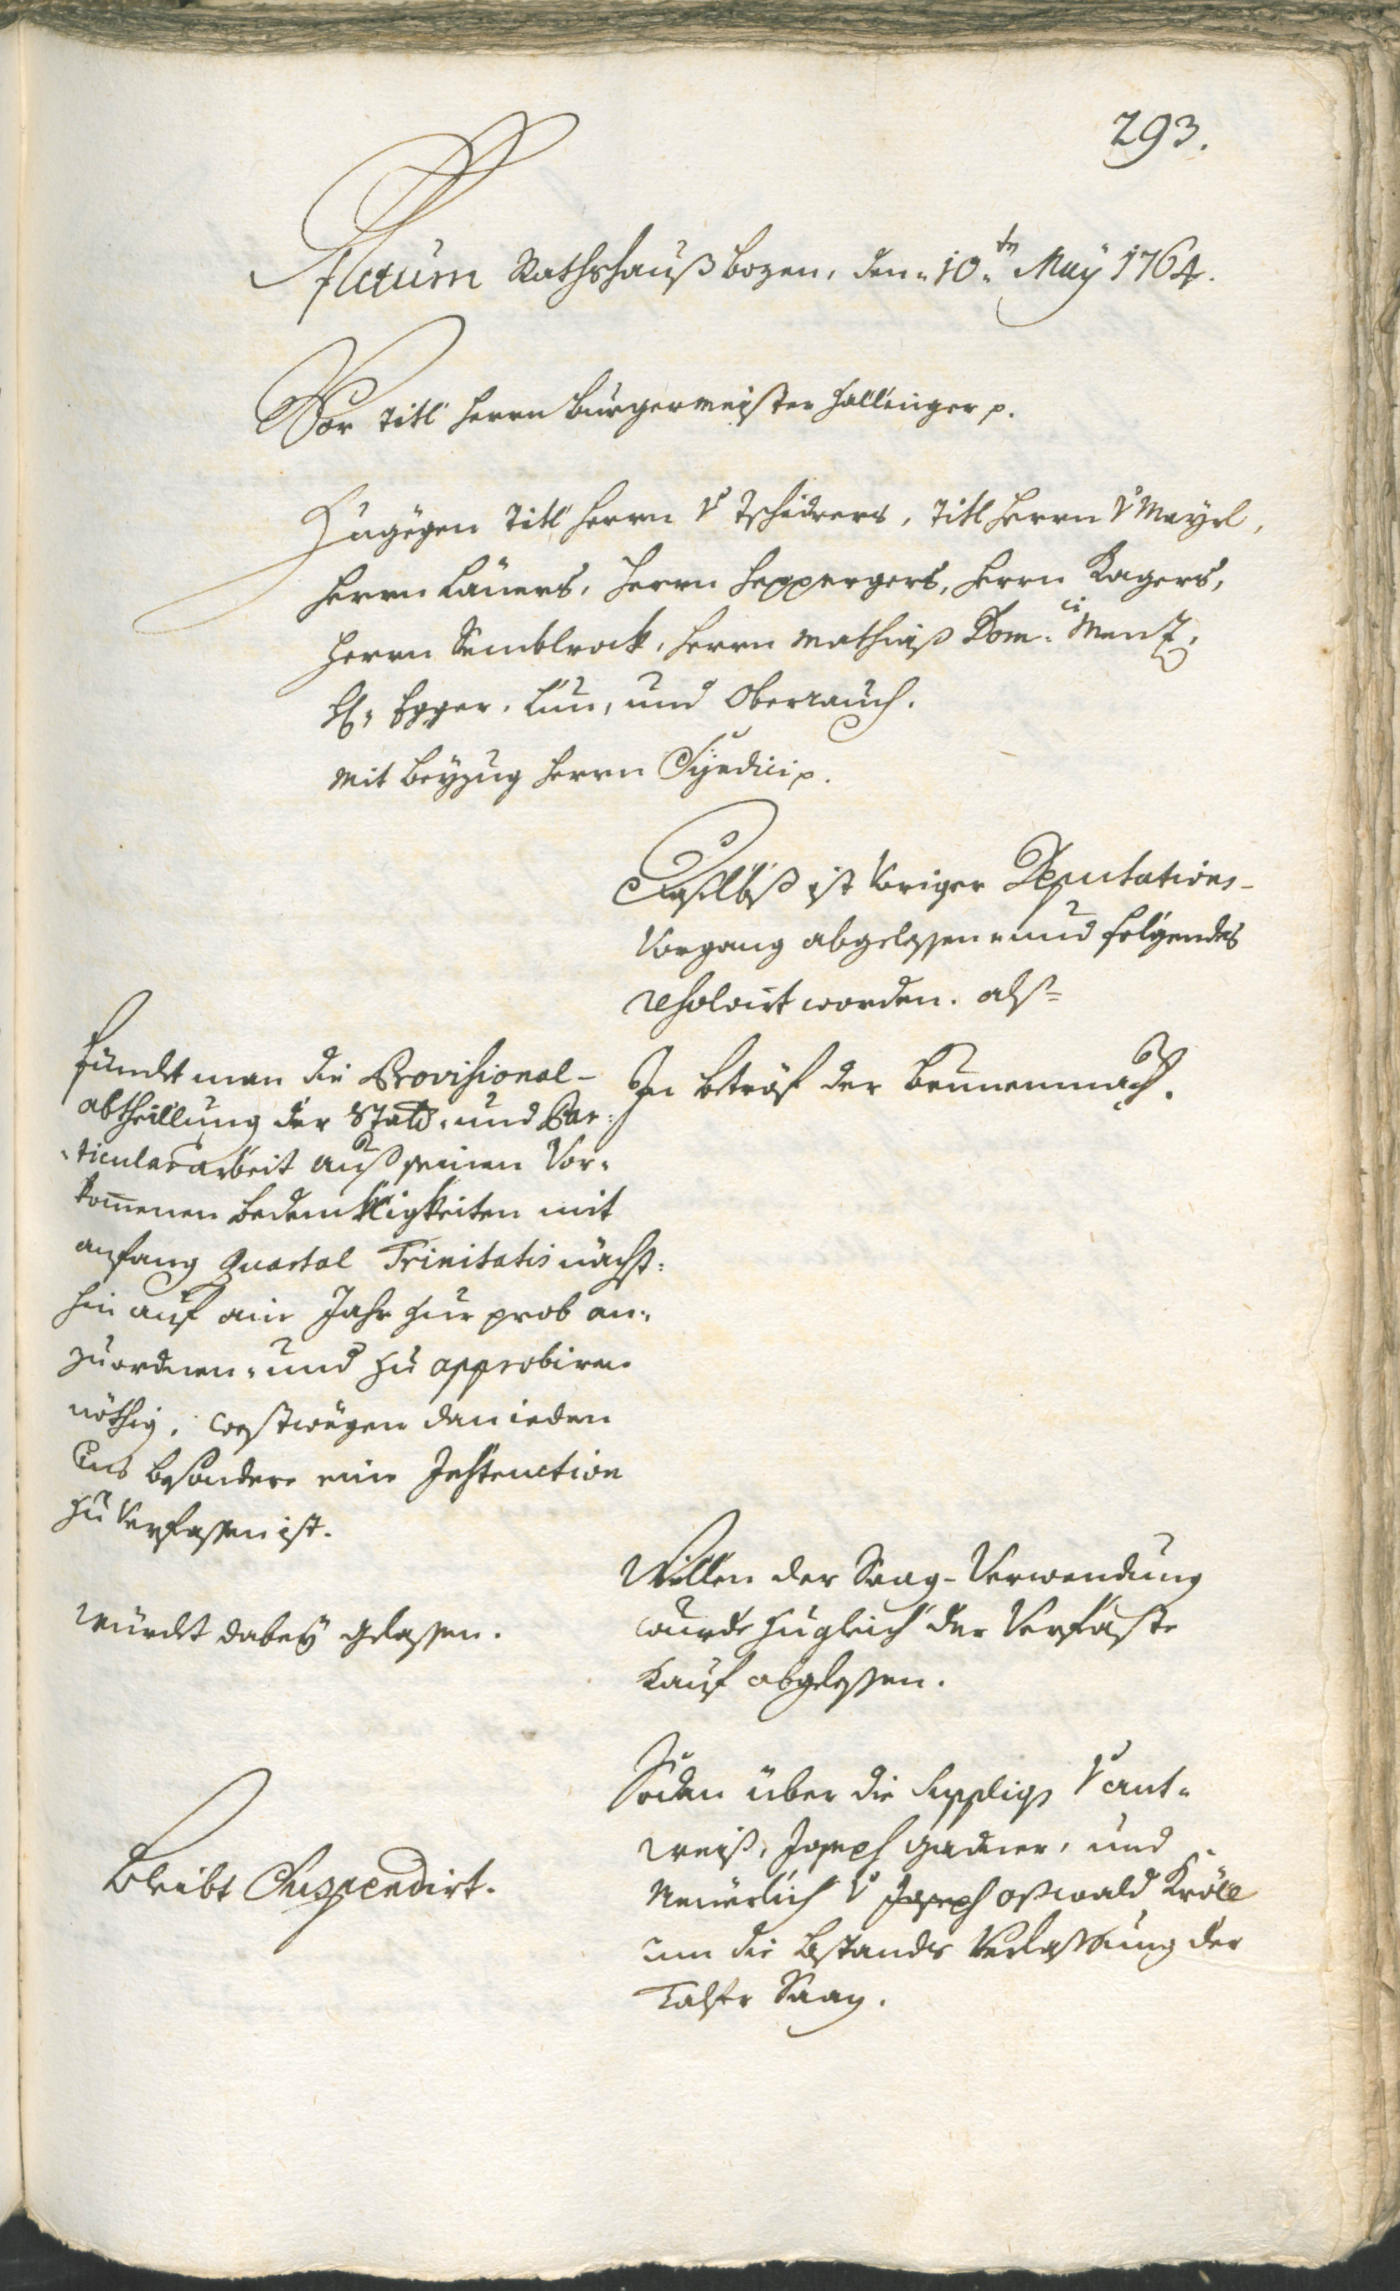 293.
Actum Rathshauß Bozen, den 10.ten May 1764.
Vor Titl Herrn Burgermeister Hallinger p.
Zugegen Titl Herrn v Tschidrers, Titl Herrn v Mayrl,
Herrn Lauers, Herrn Heppergers, Herrn Ragers,
Herrn Semblrock, Herrn Mathiaß Dom:ci Menz,
H: Egger, Lun, und Oberrauch.
Mit Beyzug Herrn Syndici p.
Erstlich ist voriger Deputations-
Vorgang abgelesen und folgendes
resolvirt worden. alß
In betröf der Brunenmach.
Fündet man die Provisional-
abtheillung der Statt- und Par-
ticulararbeit auß seinen vor-
komenen bedenkligkeiten mit
anfang Quartal Trinitatis nächst-
hin auf ain Jahr zur prob an-
zuordnen, und zu approbiren
nöthig, westwegen dan ieden
ins besondere eine Instruction
zu verfassen ist.
Willen der Saag-Verwendung
wurde zugleich der verfaste
Kauf abgelesen.
würdet dabey gelassen.
Sodan über die Supplig v ant-
weiß, Joseph Gadner, und
Neuerlich v Joseph Oßwald Kröll
um die bstands verlassung der
Talfer Saag.
Bleibt Suspendirt.